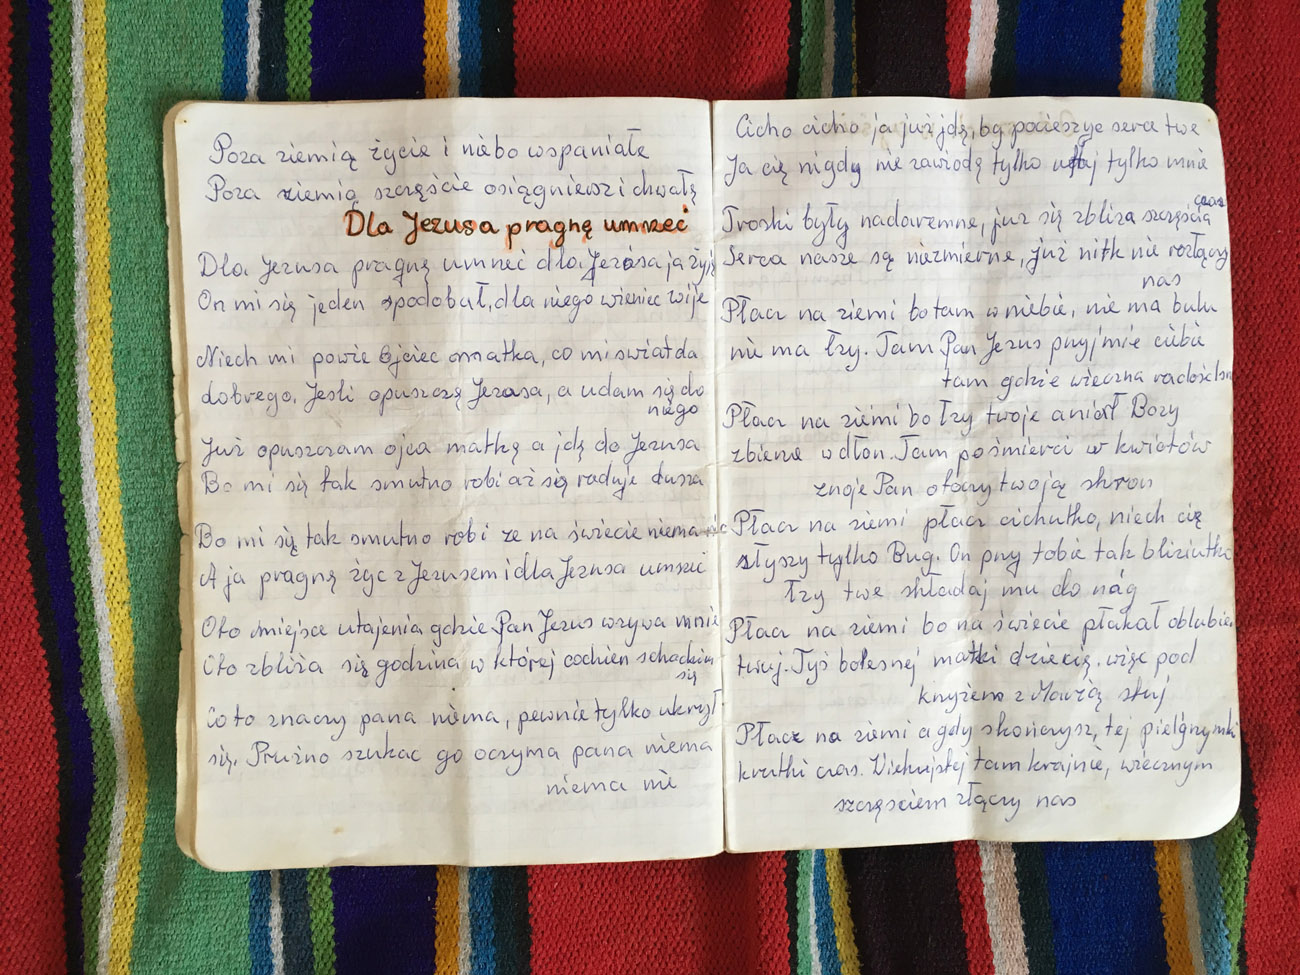 Poza ziemią życie i niebo wspaniałe
Poza ziemią szczęście osiągniesz i chwałę
Dla Jezusa pragnę umrzeć
Dla Jezusa pragnę umrzeć dla Jezusa ja żyję
On mi się jeden spodobał, dla niego wieniec wije
Niech mi powie Ojciec matka, co mi świat da
dobrego, Jeśli opuszczę Jezusa, a udam się do
niego
Już opuszczam ojca matkę a jdę do Jezusa
Bo mi się tak smutno robi aż się raduje dusza
Bo mi się tak smutno robi ze na świecie niema nic
A ja pragnę żyć z Jezusem i dla Jezusa umrzeć
Oto miejsce utajenia gdzie Pan Jezus wzywa mnie
Oto zbliża się godzina w której cochien
się
Co to znaczy pana niema, pewnie tylko ukrył
się. Prużno szukac go oczyma pana niema
niema nie
Cicho cicho ja już jdę, by pocieszyc serce twe
Ja cię nigdy nie zawiodę tylko ufaj tylko mnie
czas
Troski były nadaremne, już się zbliża szczęścia
Serca nasze są niezmierne, już nitk nie rozłączy
nas
Płacz na ziemi bo tam w niebie, nie ma bulu
nie ma łzy. Tam Pan Jezus pryjmie ciebie
tam gdzie wieczna radość
Płacz na ziemi bo łzy twoje anioł Bozy
zbierze w dłon. Tam po śmierci w kwiotów
znoje Pan otoczy twoją skron
Płacz na ziemi płacz cichutko, niech cię
słyszy tylko Bug. On pry tobie tak bliziutko
łzy twe składaj mu do nóg
Płacz na ziemi bo na świecie płakał oblubie
twuj. Tyś bolesnej matki dziecię, więc pod
knyżem z Maryą stuj
Płacz na ziemi a gdy skończysz, tej pielgrzymki
krutki czas. Wiekujstej tam krajnie, wiecznym
szczęsciem złączy nas